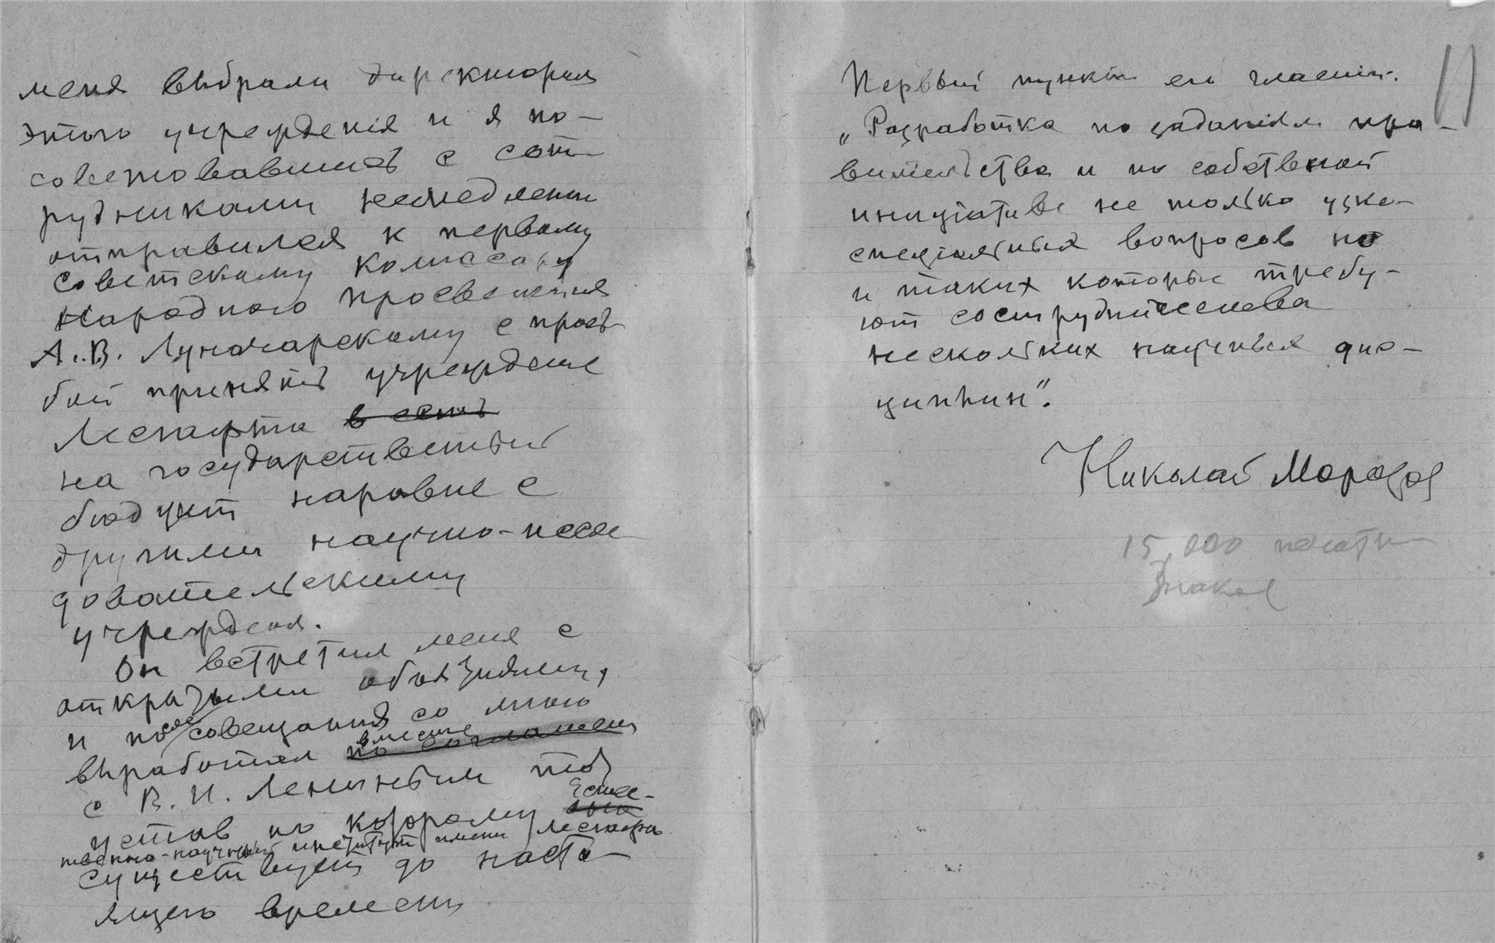 меня выбрали директором
этого учреждения и я по-
советовавшись с сот-
рудниками немедленно
отправился к первому
советскому комиссару
Народного просвещения
А.В. Луначарскому с прось-
бой принять учреждение
Лесгафта в есть
на государственный
бюджет наравне с
другими научно-иссле
довательскими
учреждения.
Он встретил меня с
открытыми объятиями,
и после совещания со мною
выработал вместе
с В.И. Лениным тот
устав по которому Естес-
твенно-научный институт имени Лесгафта
существует до насто-
ящего времени
Первый пункт его гласит.
„Разработка по заданиям пра-
вительства и по собственной
инициативе не только узко-
специальных вопросов но
и таких которые требу-
ют сотрудничества
нескольких научных дис-
циплин".
Николай Морозов
15,000 печатн
знаков
11